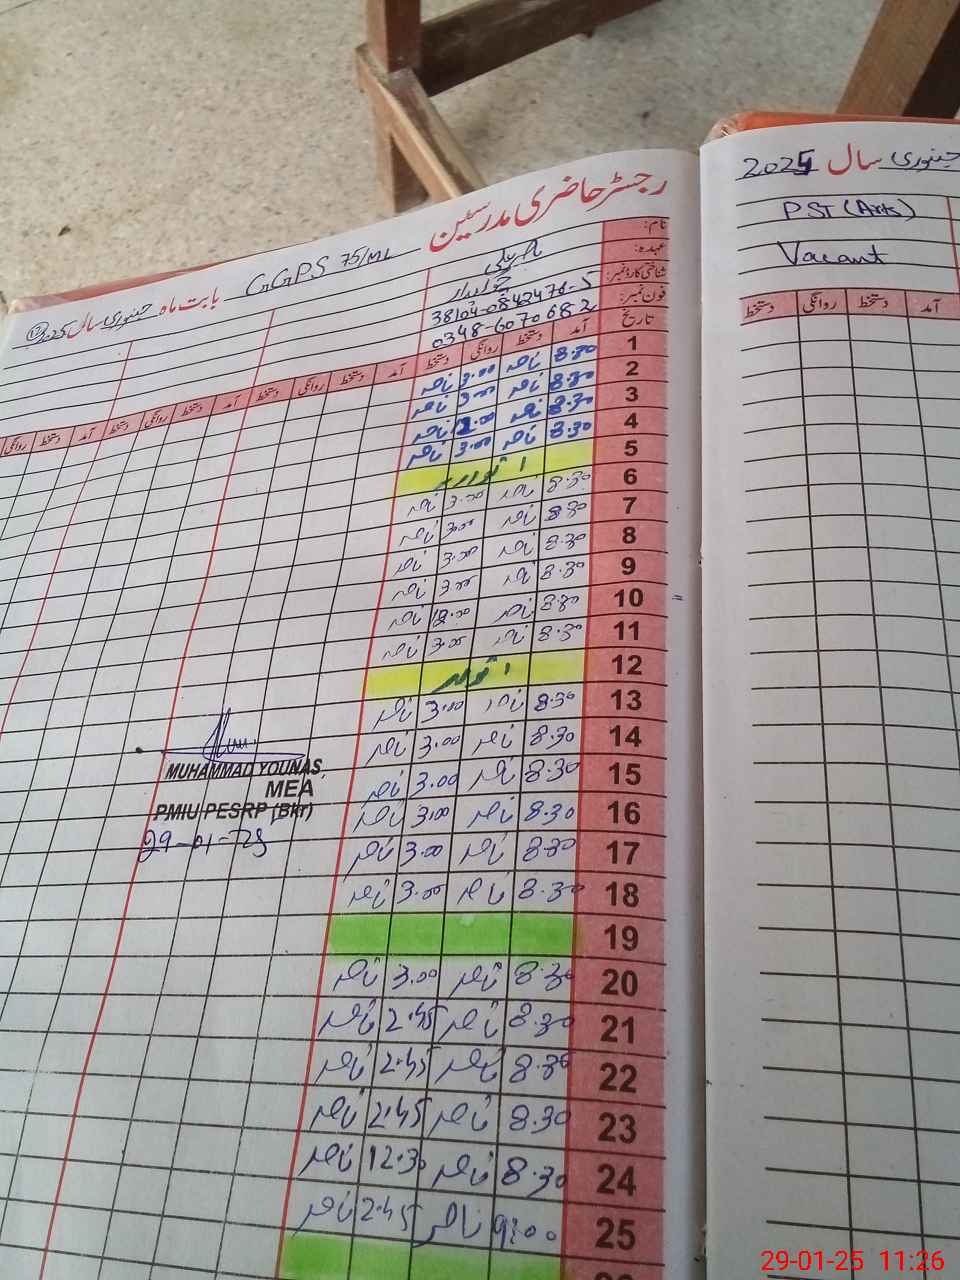 رجسٹر حاضری مدرسین
GGPS 75/ML بابت ماہ جنوری سال 2025
نام: ناصر علی
عہدہ: چوکیدار
شناختی کارڈ نمبر: 38104-0842476-5
فون نمبر: 0348-6070682
تاریخ آمد دستخط روانگی دستخط آمد دستخط روانگی دستخط آمد دستخط روانگی دستخط آمد دستخط روانگی
1 8.30 ناصر 3.00 ناصر
2 8.30 ناصر 3.00 ناصر
3 8.30 ناصر 12.00 ناصر
4 8.30 ناصر 3.00 ناصر
5 اتوار
6 8.30 ناصر 3.00 ناصر
7 8.30 ناصر 3.00 ناصر
8 8.30 ناصر 3.00 ناصر
9 8.30 ناصر 3.00 ناصر
10 8.30 ناصر 12.00 ناصر
11 8.30 ناصر 3.00 ناصر
12 اتوار
13 8.30 ناصر 3.00 ناصر
14 8.30 ناصر 3.00 ناصر
15 8.30 ناصر 3.00 ناصر
16 8.30 ناصر 3.00 ناصر
17 8.30 ناصر 3.00 ناصر
18 8.30 ناصر 3.00 ناصر
19
20 8.30 ناصر 3.00 ناصر
21 8.30 ناصر 2.45 ناصر
22 8.30 ناصر 2.45 ناصر
23 8.30 ناصر 2.45 ناصر
24 8.30 ناصر 12.30 ناصر
25 9:00 ناصر 2.45 ناصر
MUHAMMAD YOUNAS
MEA
PMIU PESRP (Bkr)
29-01-25
جنوری سال 2025
PST (Arts)
Vacant
آمد دستخط روانگی دستخط
29-01-25 11:26